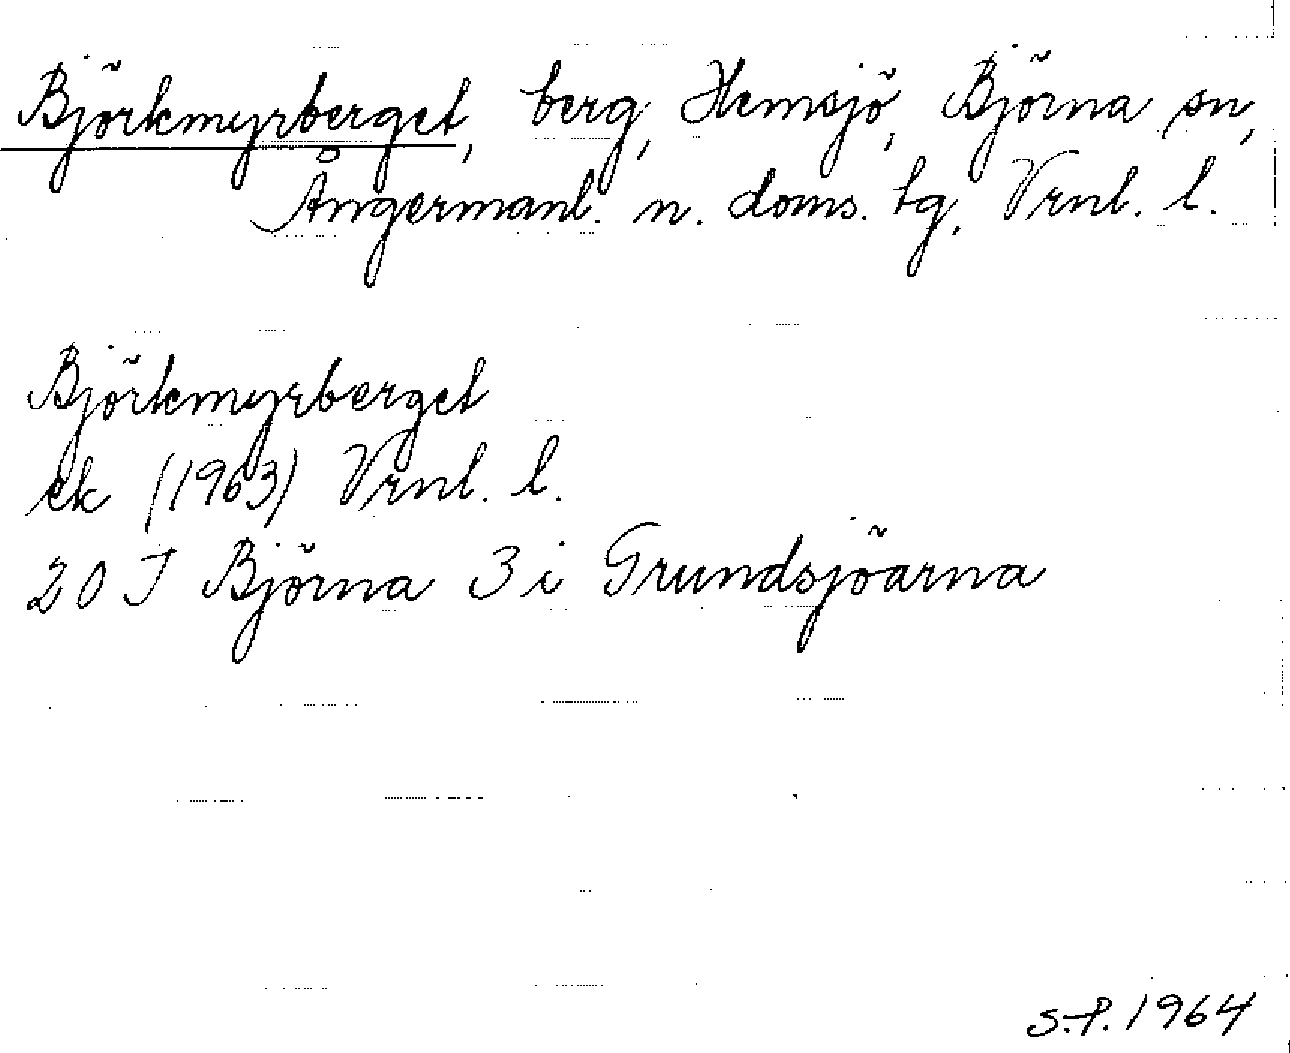 Björkmyrberget, berg, Hemsjö, Björna sn,
Ångermanl. n. doms. tg. Vrnl. l.
Björkmyrberget
ek (1963) Vrnl. l.
20 J Björna 3 i Grundsjöarna
S.P. 1964